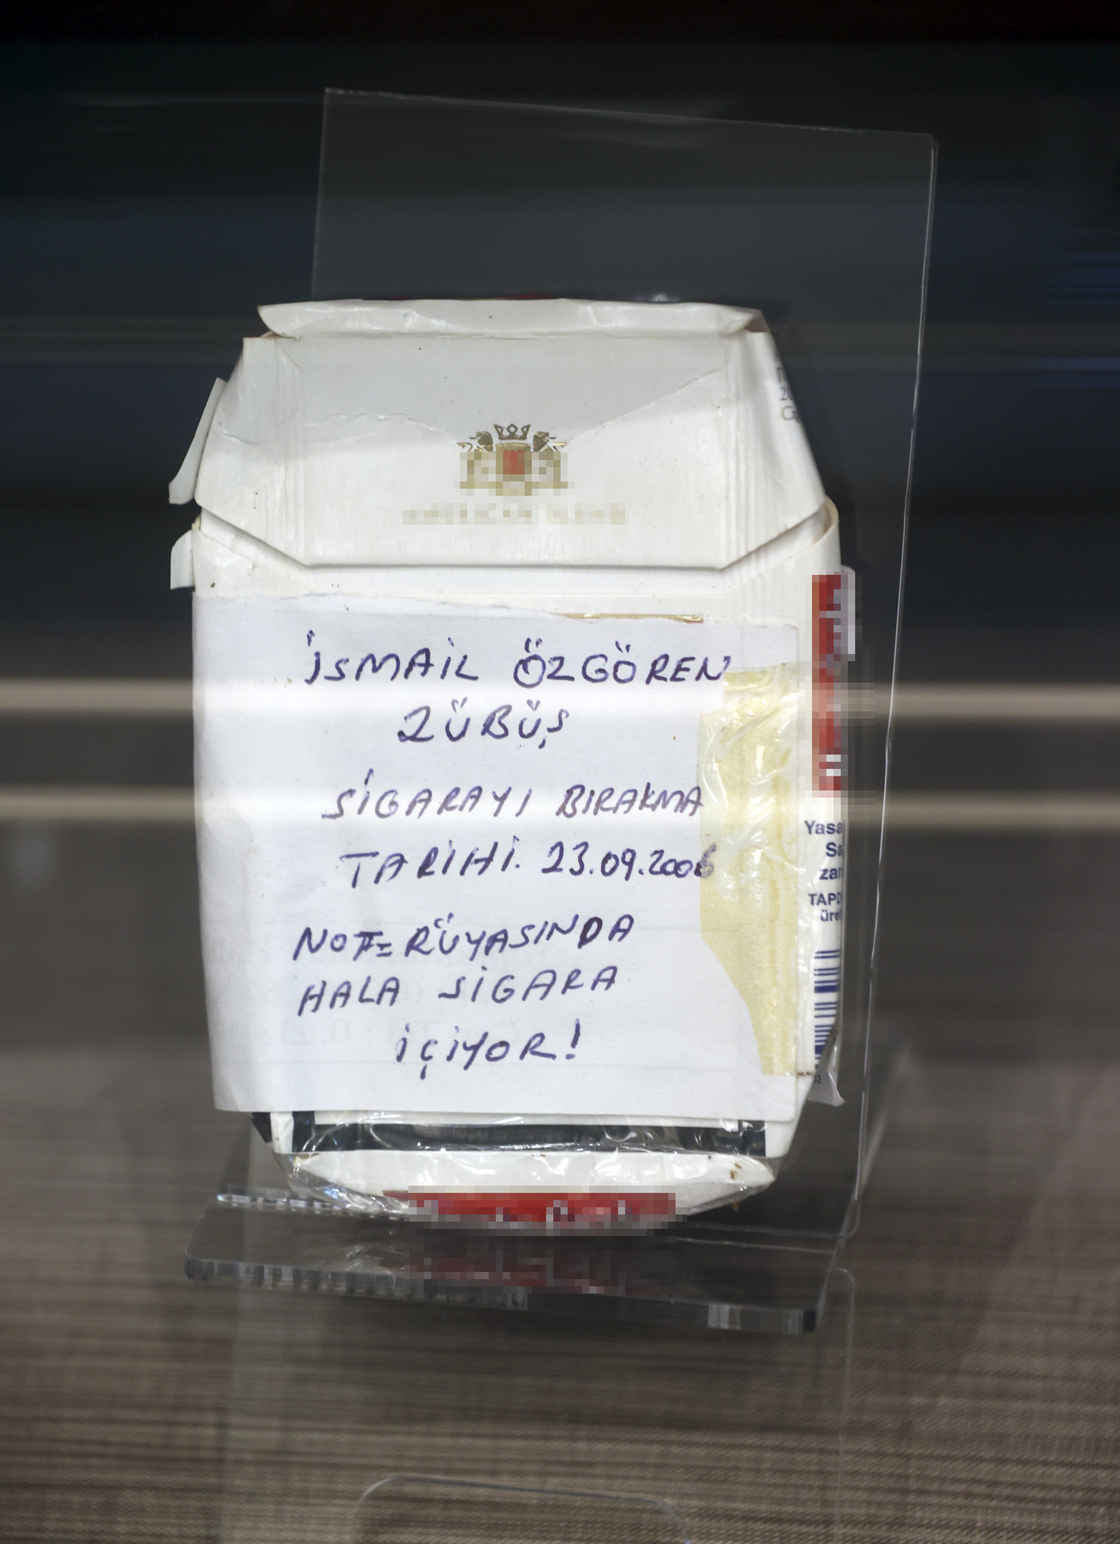 AMERICAN BLEND
İSMAİL ÖZGÖREN
ZÜBÜŞ
SİGARAYI BIRAKMA
TARİHİ. 23.09.2006
NOT= RÜYASINDA
HALA SİGARA
İÇİYOR!
Yasa
Sa
zar
TAPD
üre